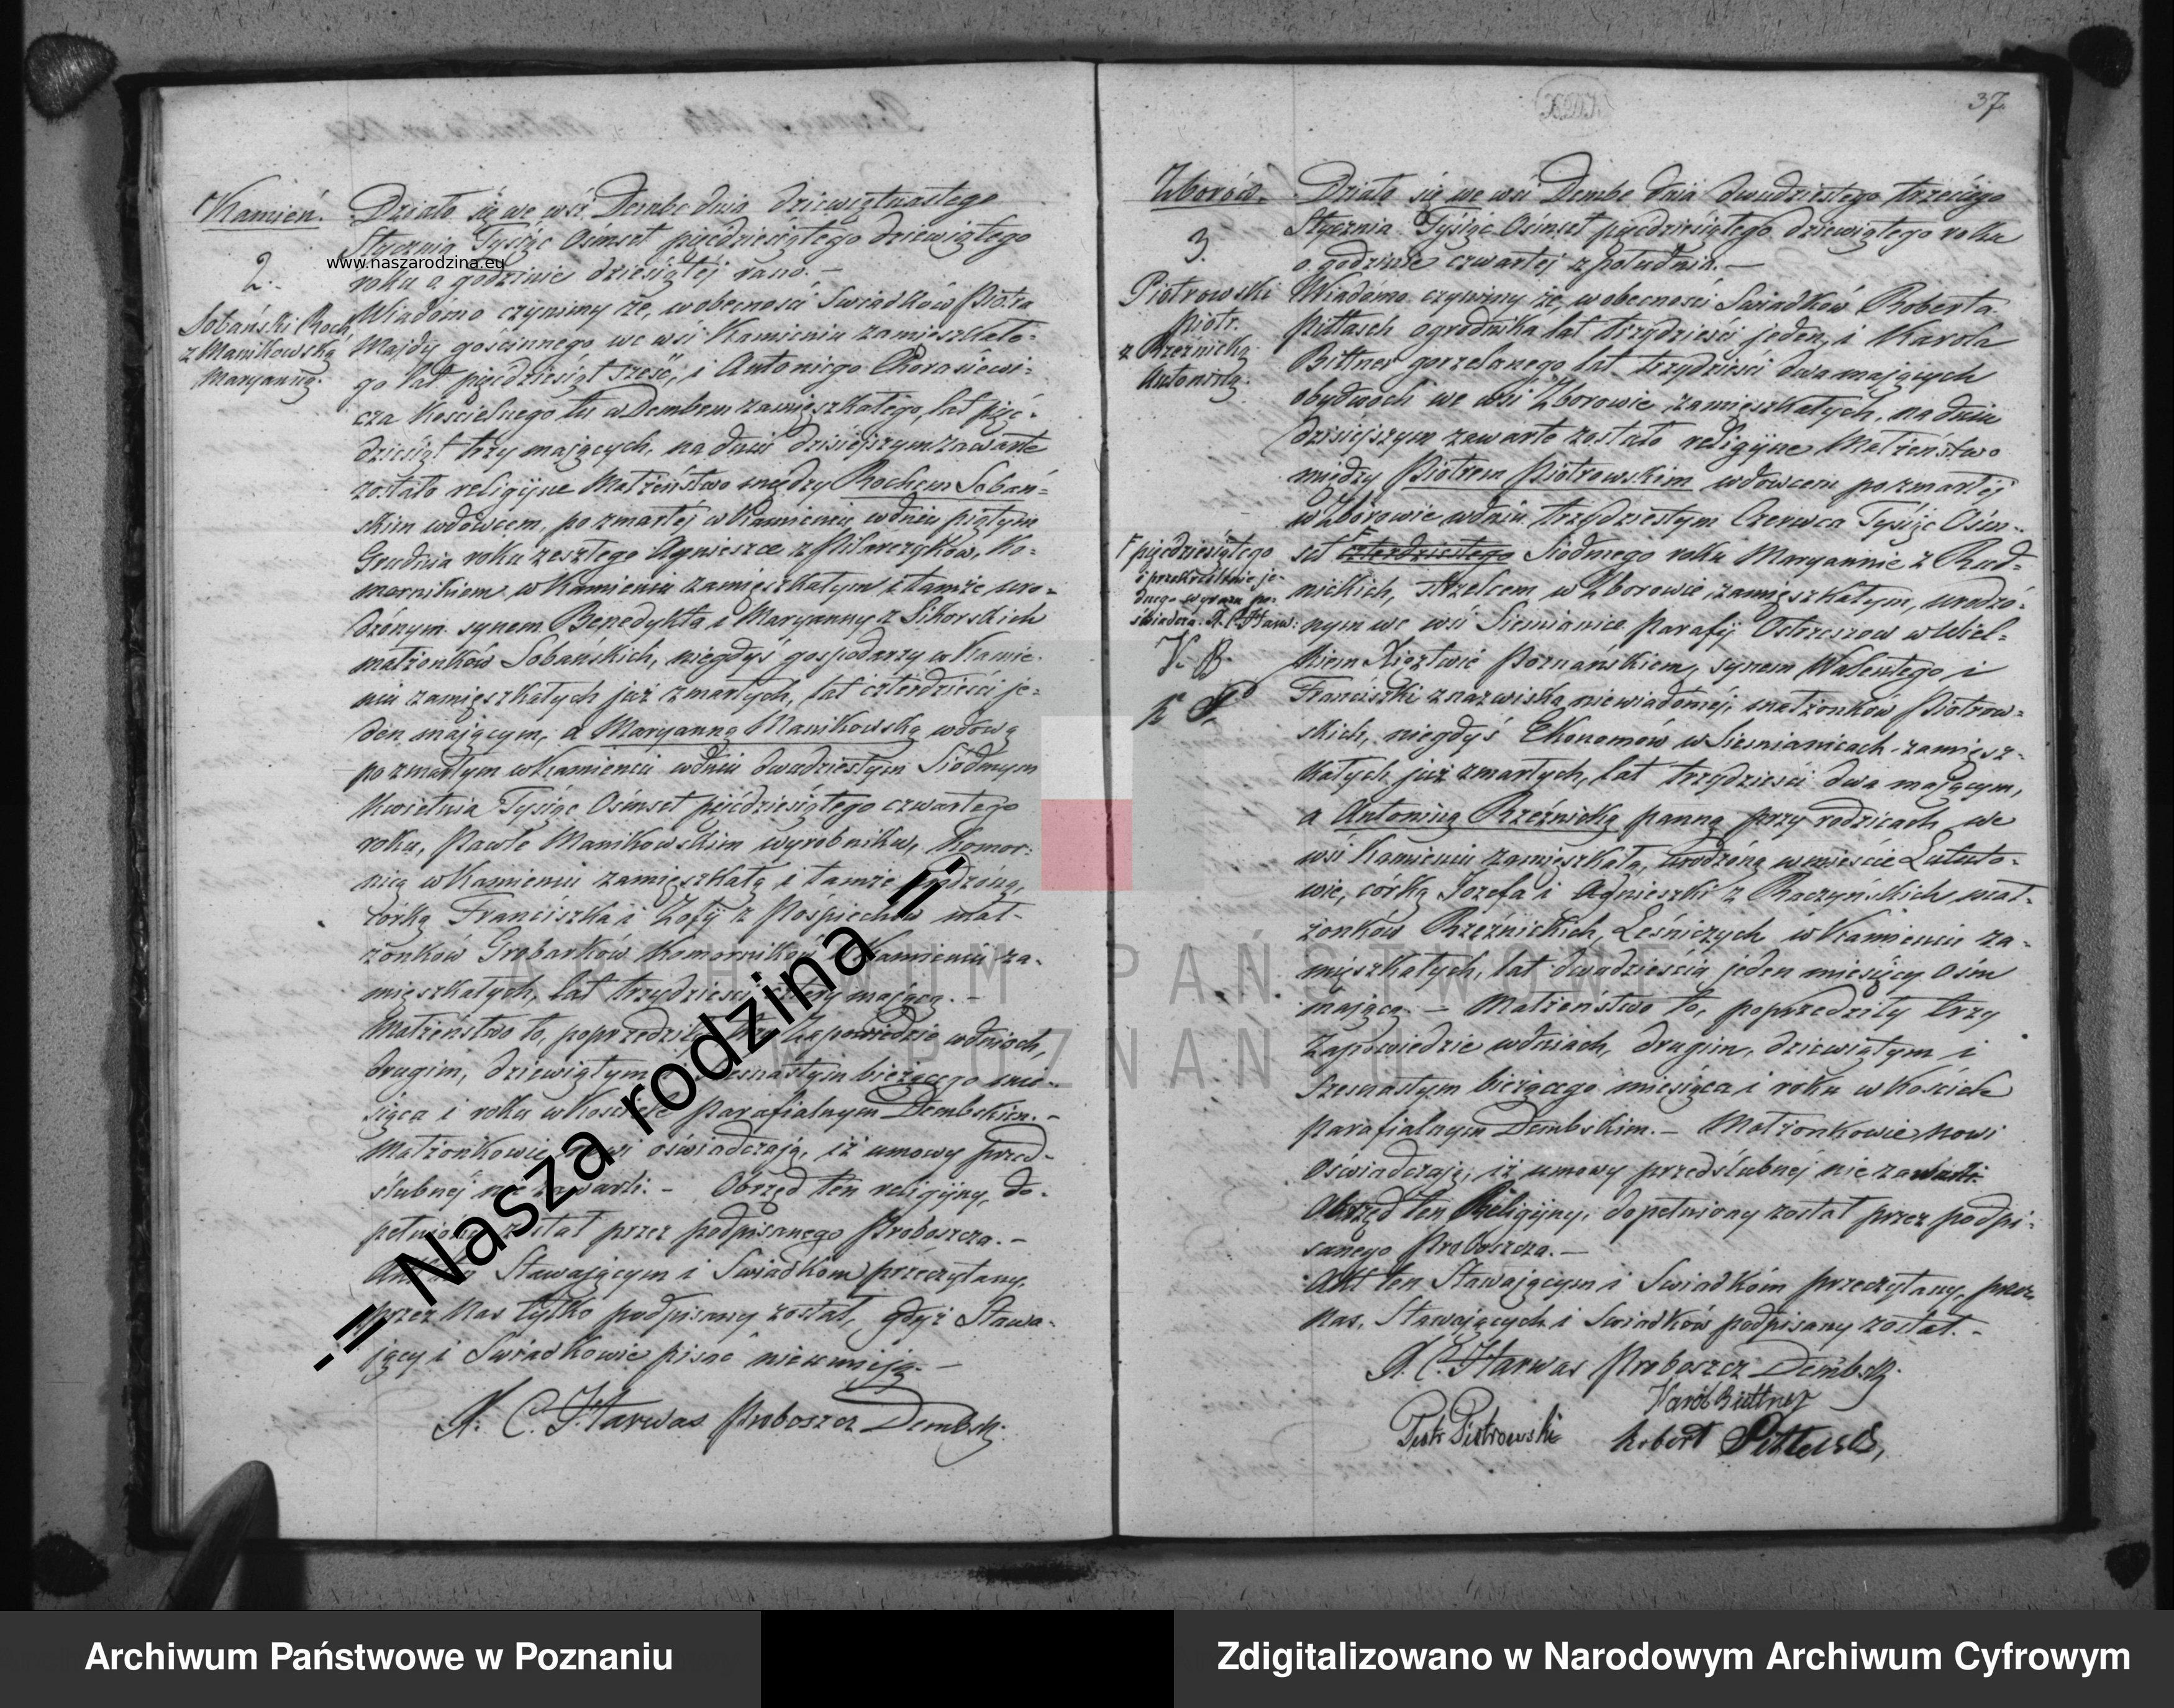 Kamień.
2.
Sobański Roch
z Manikowską
Maryanną.
Działo się we wsi Dembe dnia dziewiętnastego
Stycznia Tysiąc Ośmset pięćdziesiątego dziewiątego
www.naszarodzina.eu
roku o godzinie dziesiątej rano. –
Wiadomo czynimy że, w obecności Swiadków Piotra
Majdy gościnnego we wsi Kamieniu zamieszkałe-
go lat pięćdziesiąt sześć, i Antoniego
cza Kościelnego tu w Dembem zamieszkałego, lat pięć-
dziesiąt trzy mających, na dniu dzisiejszym zawarte
zostało religijne Małżeństwo między Rochem Sobań-
skim wdowcem, po zmarłej w Kamieniu w dniu piątym
Grudnia roku zeszłego Agnieszce z Pilarczyków, Ko-
mornikiem w Kamieniu zamieszkałym i tamże uro-
dzonym synem Benedykta i Maryanny z Sikorskich
małżonków Sobańskich, niegdyś gospodarzy w Kamie-
niu zamieszkałych już zmarłych, lat czterdzieści je-
den mającym, a Maryanną Manikowską wdową
po zmarłym w Kamieniu w dniu dwudziestym Siódmym
Kwietnia Tysiąc Ośmset pięćdziesiątego czwartego
roku, Pawle Manikowskim wyrobniku, Komor-
nicą w Kamieniu zamieszkałą i tamże urodzoną,
córką Franciszka i Zofij z Pośpiechów mał-
żonków Grobarków Komorników w Kamieniu za-
mieszkałych, lat trzydzieści cztery mającą. –
Małżeństwo to, poprzedziły trzy Zapowiedzie w dniach,
drugim, dziewiątym i szesnastym bieżącego mie-
siąca i roku w Kościele Parafialnym Dembskim. –
Małżonkowie nowi oświadczają, iż umowy przed-
ślubnej nie zawarli. – Obrzęd ten religijny, do-
pełniony został przez podpisanego Proboszcza. –
Akt ten Stawającym i Swiadkom przeczytany,
przez Nas tylko podpisany został, gdyż Stawa-
jący i Swiadkowie pisać nieumieją. –
X. C. Harwas Proboszcz Dembski
37.
Zborów.
3.
Piotrowski
Piotr
z Rzeźnicką
Antoniną.
pięćdziesiątego
i przekreślenie je-
dnego wyrazu po-
świadcza X. C. Harw:
V. B.
Działo się we wsi Dembe dnia dwudziestego trzeciego
Stycznia Tysiąc Ośmset pięćdziesiątego dziewiątego roku
o godzinie czwartej z południa. –
Wiadomo czynimy że, w obecności Swiadków Roberta
Pittasch ogrodnika lat trzydzieści jeden, i Karola
Bittner gorzelanego lat trzydzieści dwa mających
obydwóch we wsi Zborowie zamieszkałych, na dniu
dzisiejszym zawarte zostało religijne Małżeństwo
między Piotrem Piotrowskim wdowcem po zmarłej
w Zborowie w dniu trzydziestym Czerwca Tysiąc Ośm-
set czterdziestego Siódmego roku Maryannie z Rud-
nickich, Strzelcem w Zborowie zamieszkałym, urodzo-
nym we wsi Siemianice Parafij Ostrzeszow w Wiel-
kiem Xięztwie Poznańskiem, synem Walentego i
Franciszki z nazwiska niewiadomej, małżonków Piotrow-
skich, niegdyś Ekonomów w Siemianicach zamiesz-
kałych już zmarłych, lat trzydzieści dwa mającym,
a Antoniną Rzeźnicką panną przy rodzicach we
wsi Kamieniu zamieszkałą, urodzoną w mieście Lututo-
wie, córką Jozefa i Agnieszki z Raczyńskich mał-
żonków Rzeźnickich, Leśniczych w Kamieniu za-
mieszkałych, lat dwadzieścia jeden miesięcy ośm
mającą. – Małżeństwo to, poprzedziły trzy
Zapowiedzie w dniach, drugim, dziewiątym i
szesnastym bieżącego miesiąca i roku w Kościele
parafialnym Dembskim. – Małżonkowie nowi
oświadczają, iż umowy przedślubnej nie zawarli.
Obrzęd ten Religijny, dopełniony został przez podpi-
sanego Proboszcza. –
Akt ten Stawającym i Swiadkóm przeczytany, przez
Nas, Stawających i Swiadków podpisany został. –
X. C. Harwas Proboszcz Dembski
Karól Bittner
Piotr Piotrowski Robert
-= Nasza rodzina =-
ARCHIWUM PAŃSTWOWE
W POZNANIU
Archiwum Państwowe w Poznaniu
Zdigitalizowano w Narodowym Archiwum Cyfrowym